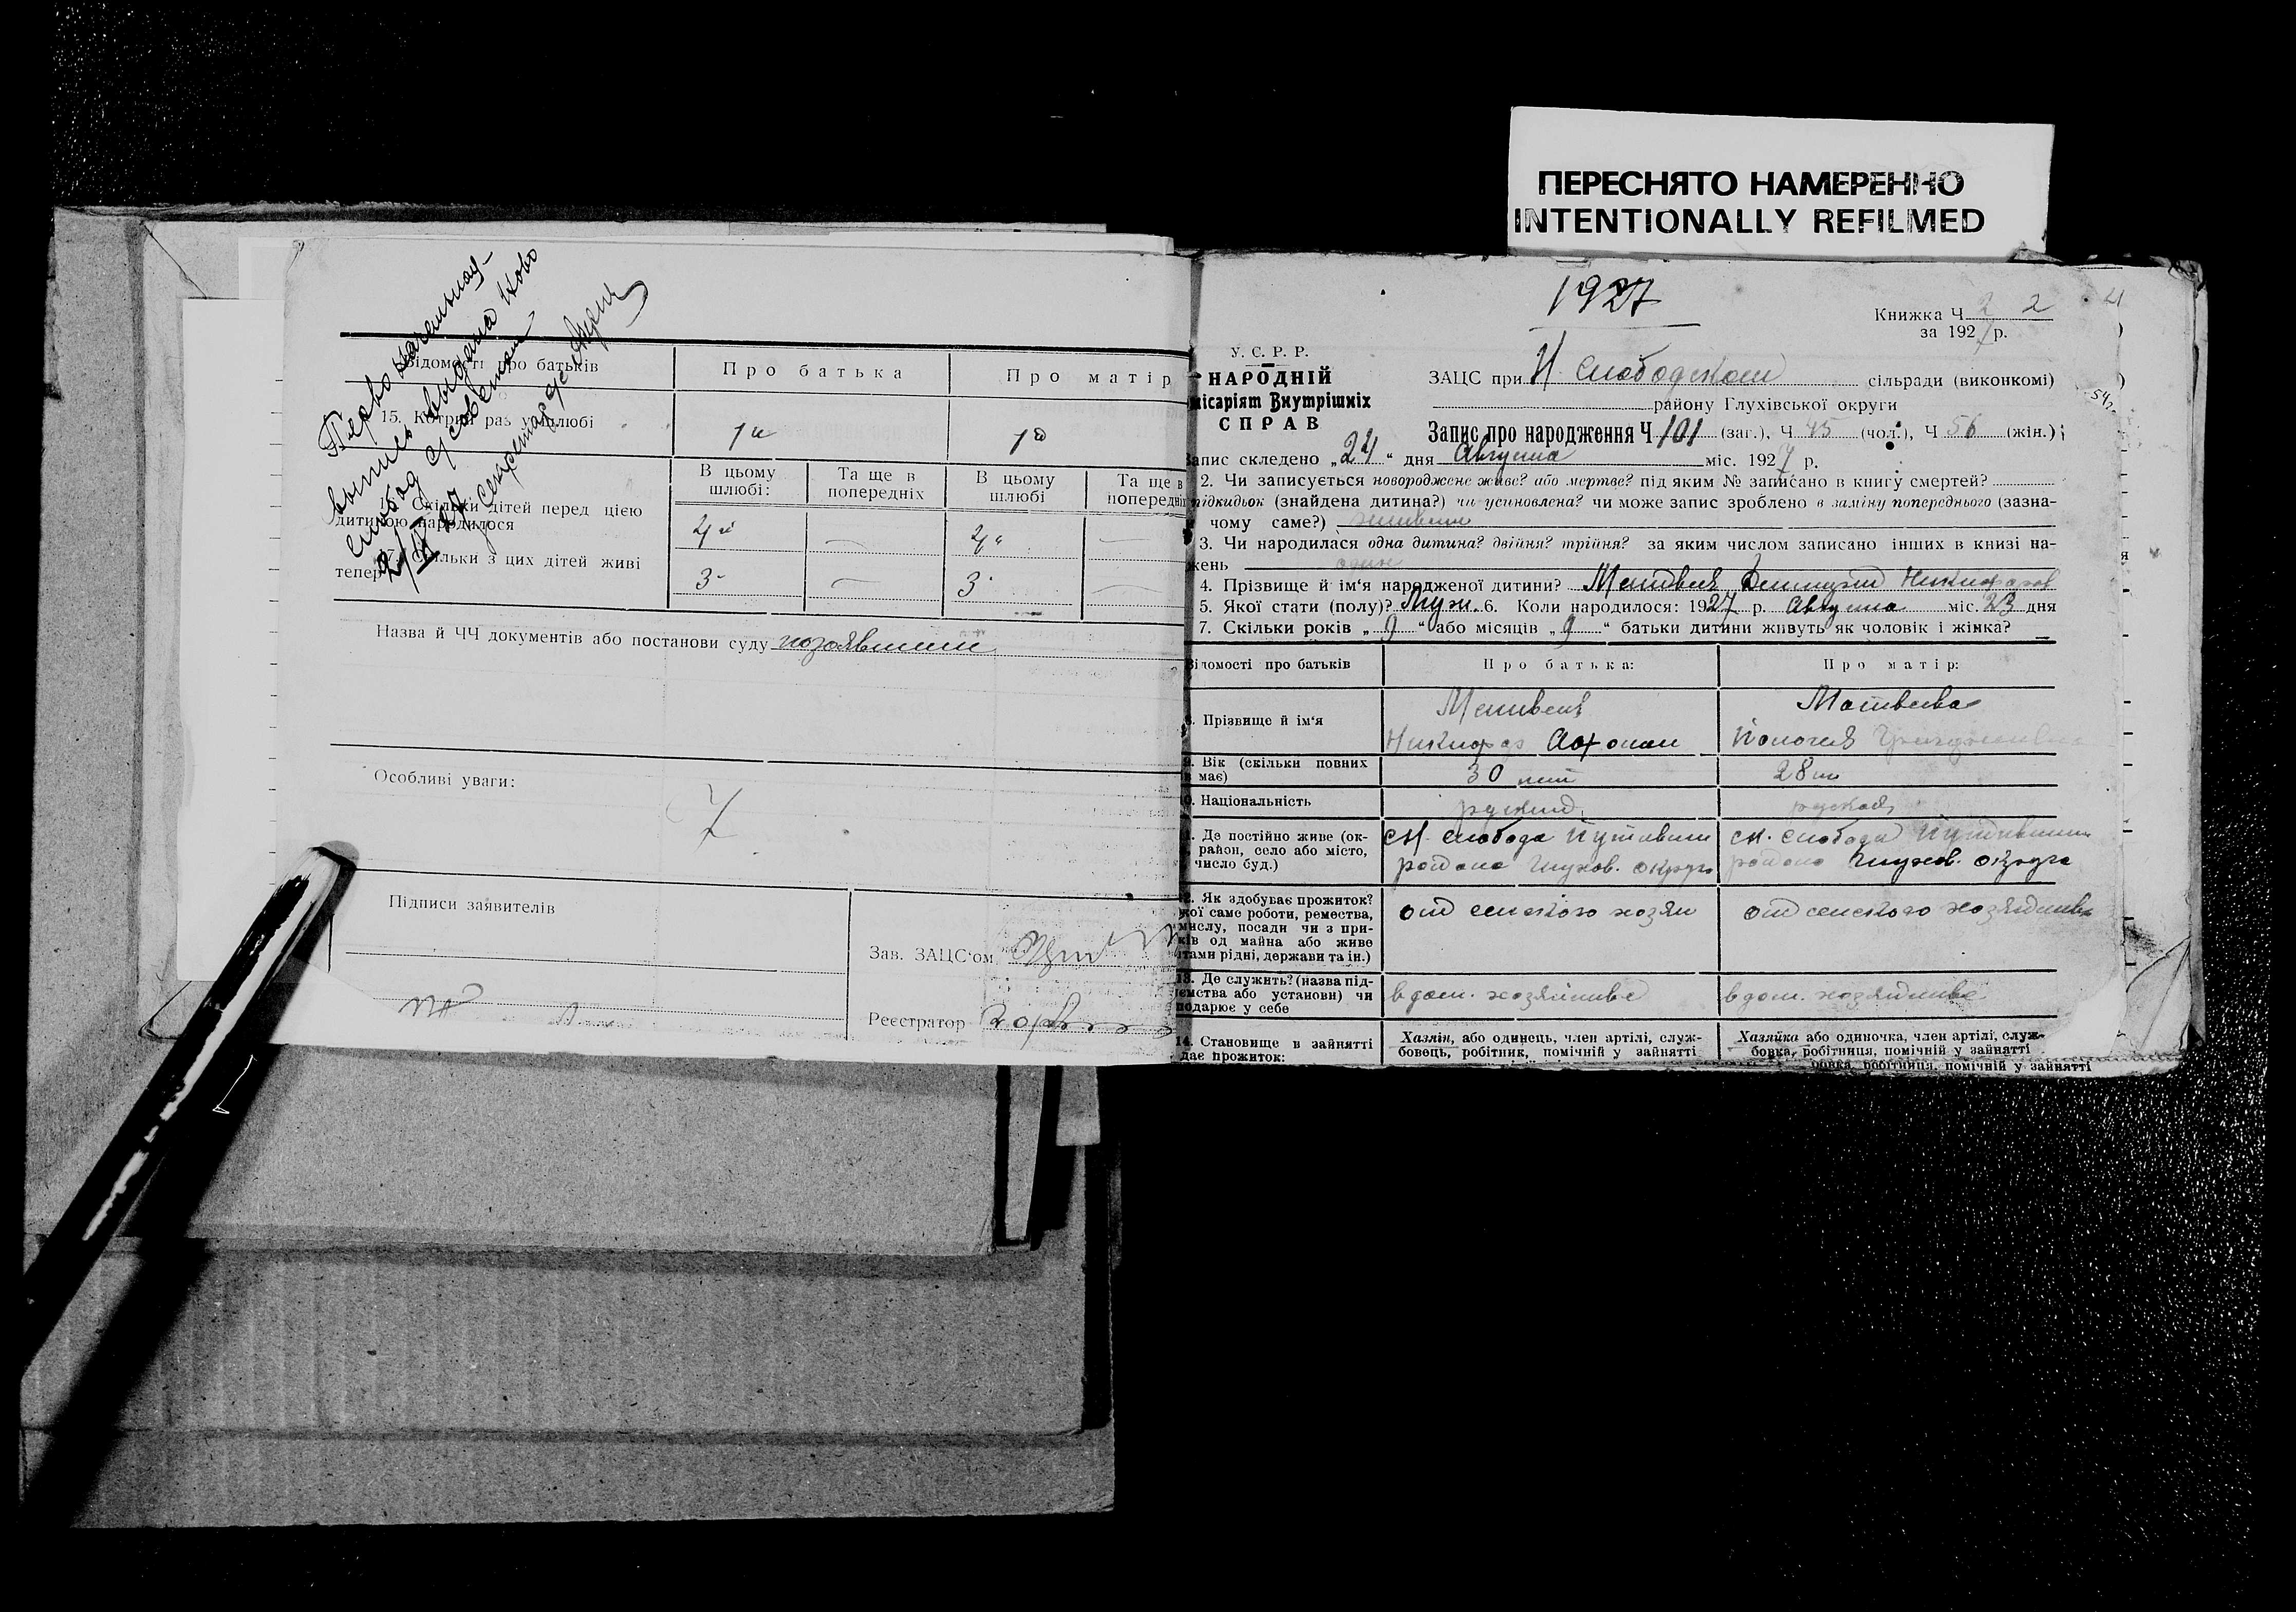 ПЕРЕСНЯТО НАМЕРЕННО
INTENTIONALLY REFILMED
Первоначальная
выпись выдана Ново
Слобод с/советом
Відомості про батьків
Про батька
Про матір
15. Котрий раз у шлюбі
1й
1й
В цьому шлюбі:
Та ще в попередніх
В цьому шлюбі
Та ще в
Скільки дітей перед цією
дитиною народилося
4
—
4
—
Скільки з цих дітей живі
тепер
3
—
3
—
Назва й ЧЧ документів або постанови суду
Особливі уваги:
Підписи заявителів
Зав. ЗАЦС'ом
Реєстратор
1927
Книжка Ч 2 2
за 1927 р.
У. С. Р. Р.
НАРОДНІЙ
місаріят Внутрішніх
СПРАВ
ЗАЦС при Н Слободском сільради (виконкомі)
району Глухівської округи
Запис про народження Ч 101 (заг.), Ч 45 (чол.), Ч 56 (жін.)
Запис складено „24“ дня Августа міс. 1927 р.
2. Чи записується новороджене живе? або мертве? під яким № записано в книгу смертей?
підкидьок (знайдена дитина?) чи усиновлена? чи може запис зроблено в заміну попереднього (зазна-
чому саме?)
3. Чи народилася одна дитина? двійня? трійня? за яким числом записано інших в книзі на-
жень один
4. Прізвище й ім'я народженої дитини? Матвеев Дмитрий Никифоров
5. Якої стати (полу)? Муж. 6. Коли народилося: 1927 р. Августа міс. 23 дня
7. Скільки років „9“ або місяців „9“ батьки дитини живуть як чоловік і жінка?
Відомості про батьків
Про батька:
Про матір:
8. Прізвище й ім'я
Матвеев
Никифор Афонин
Матвеева
Пологея
9. Вік (скільки повних
має)
30 лет
28
10. Національність
руский
руская
11. Де постійно живе (ок-
район, село або місто,
число буд.)
сН. слобода Путивльи
района Глухов. округа
сН. слобода Путивльи
района Глухов. округа
12. Як здобуває прожиток?
якої саме роботи, ремества,
мислу, посади чи з при-
ків од майна або живе
тами рідні, держави та ін.)
от сельского хозяи
от сельского хозяйства
13. Де служить? (назва під-
ємства або установи) чи
подарює у себе
в дом. хозяйстве
в дом. хозяйстве
14. Становище в зайнятті
дає прожиток:
Хазяїн, або одинець, член артілі, служ-
бовець, робітник, помічній у зайнятті
Хазяйка або одиночка, член артілі, служ-
бовка, робітниця, помічній у зайнятті
бовка, робітниця, помічній у зайнятті